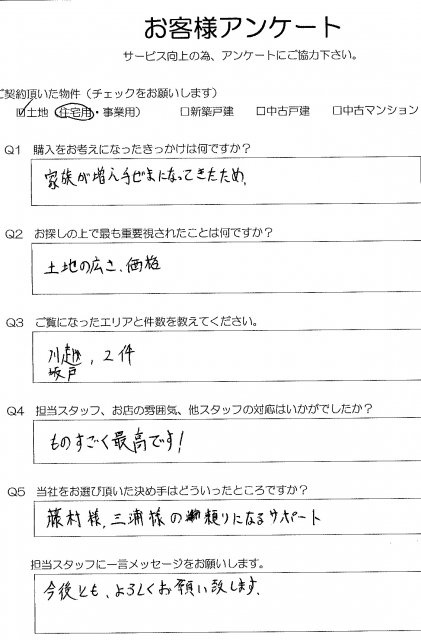 お客様アンケート
サービス向上の為、アンケートにご協力下さい。
ご契約頂いた物件（チェックをお願いします）
☑土地（住宅用・事業用） □新築戸建 □中古戸建 □中古マンション
Q1 購入をお考えになったきっかけは何ですか？
家族が増え手ぜまになってきたため、
Q2 お探しの上で最も重要視されたことは何ですか？
土地の広さ、価格
Q3 ご覧になったエリアと件数を教えてください。
川越、2件
坂戸
Q4 担当スタッフ、お店の雰囲気、他スタッフの対応はいかがでしたか？
ものすごく最高です！
Q5 当社をお選び頂いた決め手はどういったところですか？
藤村様、三浦様の頼りになるサポート
担当スタッフに一言メッセージをお願いします。
今後とも、よろしくお願い致します。